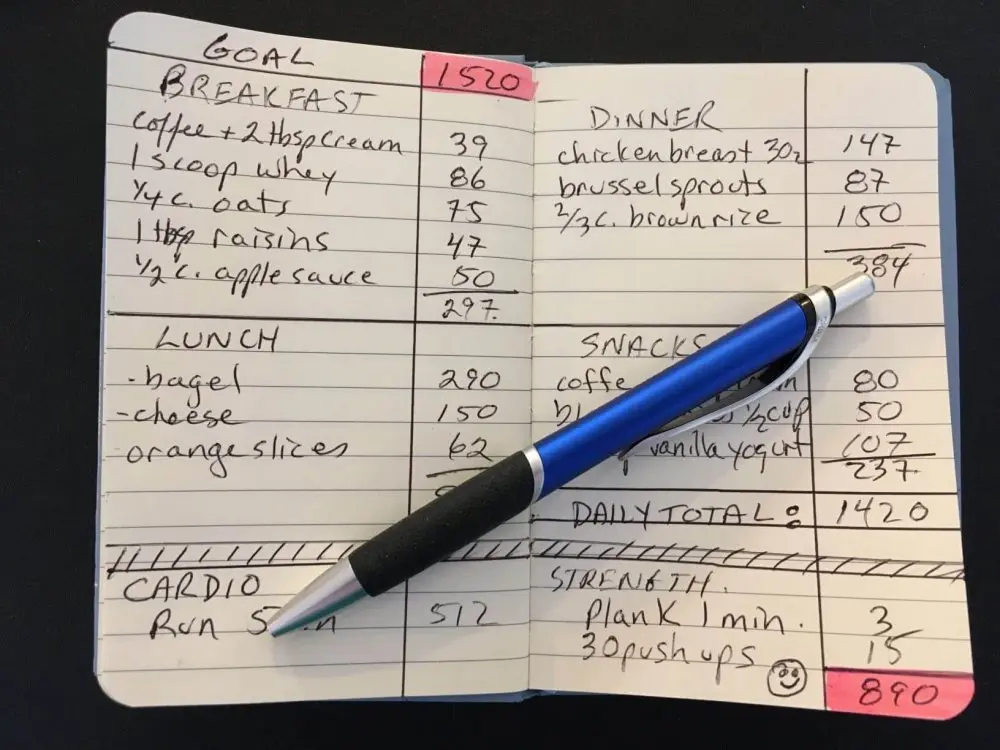 GOAL 1520
BREAKFAST
coffee + 2 tbsp cream 39
1 scoop whey 86
1/4 c. oats 75
1 tbsp raisins 47
1/2 c. apple sauce 50
297.
LUNCH
-bagel 290
-cheese 150
orange slices 62
CARDIO
Run 512
DINNER
chicken breast 3oz 147
brussel sprouts 87
2/3 c. brown rize 150
384
SNACKS
80
1/2 cup 50
vanilla yogurt 107
237
DAILY TOTAL: 1420
STRENGTH.
Plank 1 min. 3
30 push ups 15
890